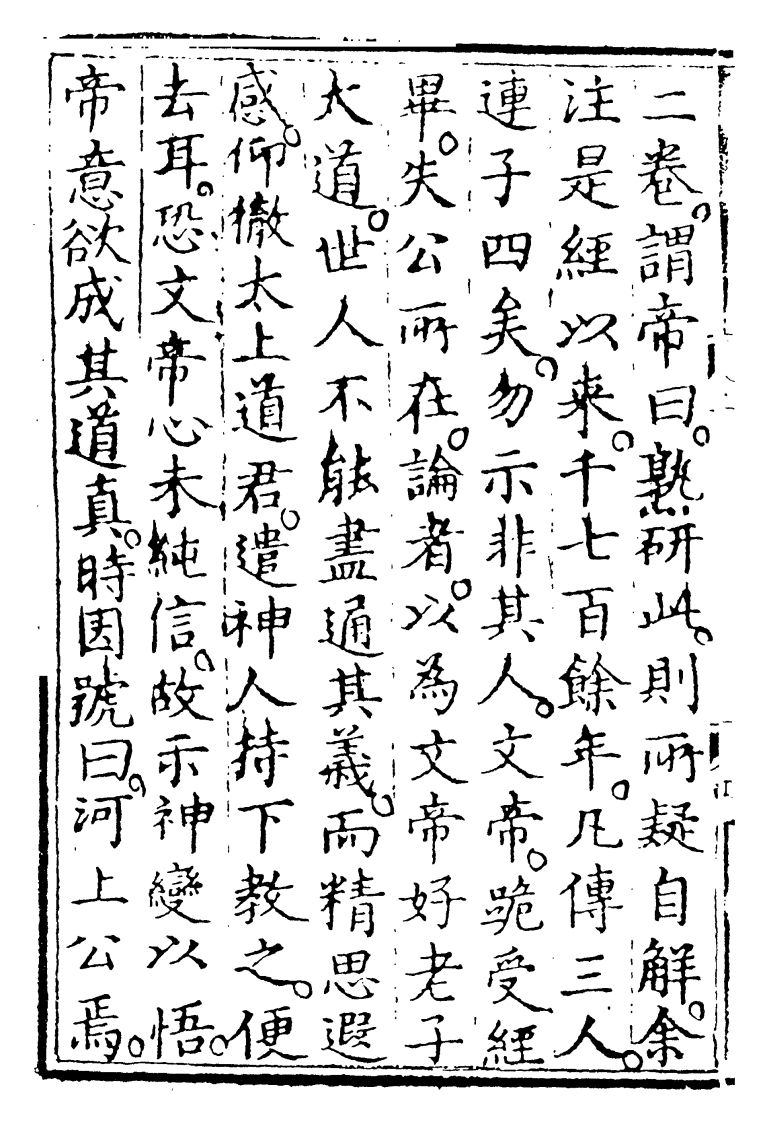 二卷。謂帝曰。熟研此。則所疑自解。余
注是經以來。千七百餘年。凡傳三人。
連子四矣。勿示非其人。文帝。跪受經
畢。失公所在。論者。以為文帝好老子
大道。世人不能盡通其義。而精思遐
感。仰徹太上道君。遣神人持下教之。便
去耳。恐文帝心未純信。故示神變以悟。
帝意欲成其道真。時因號曰。河上公焉。